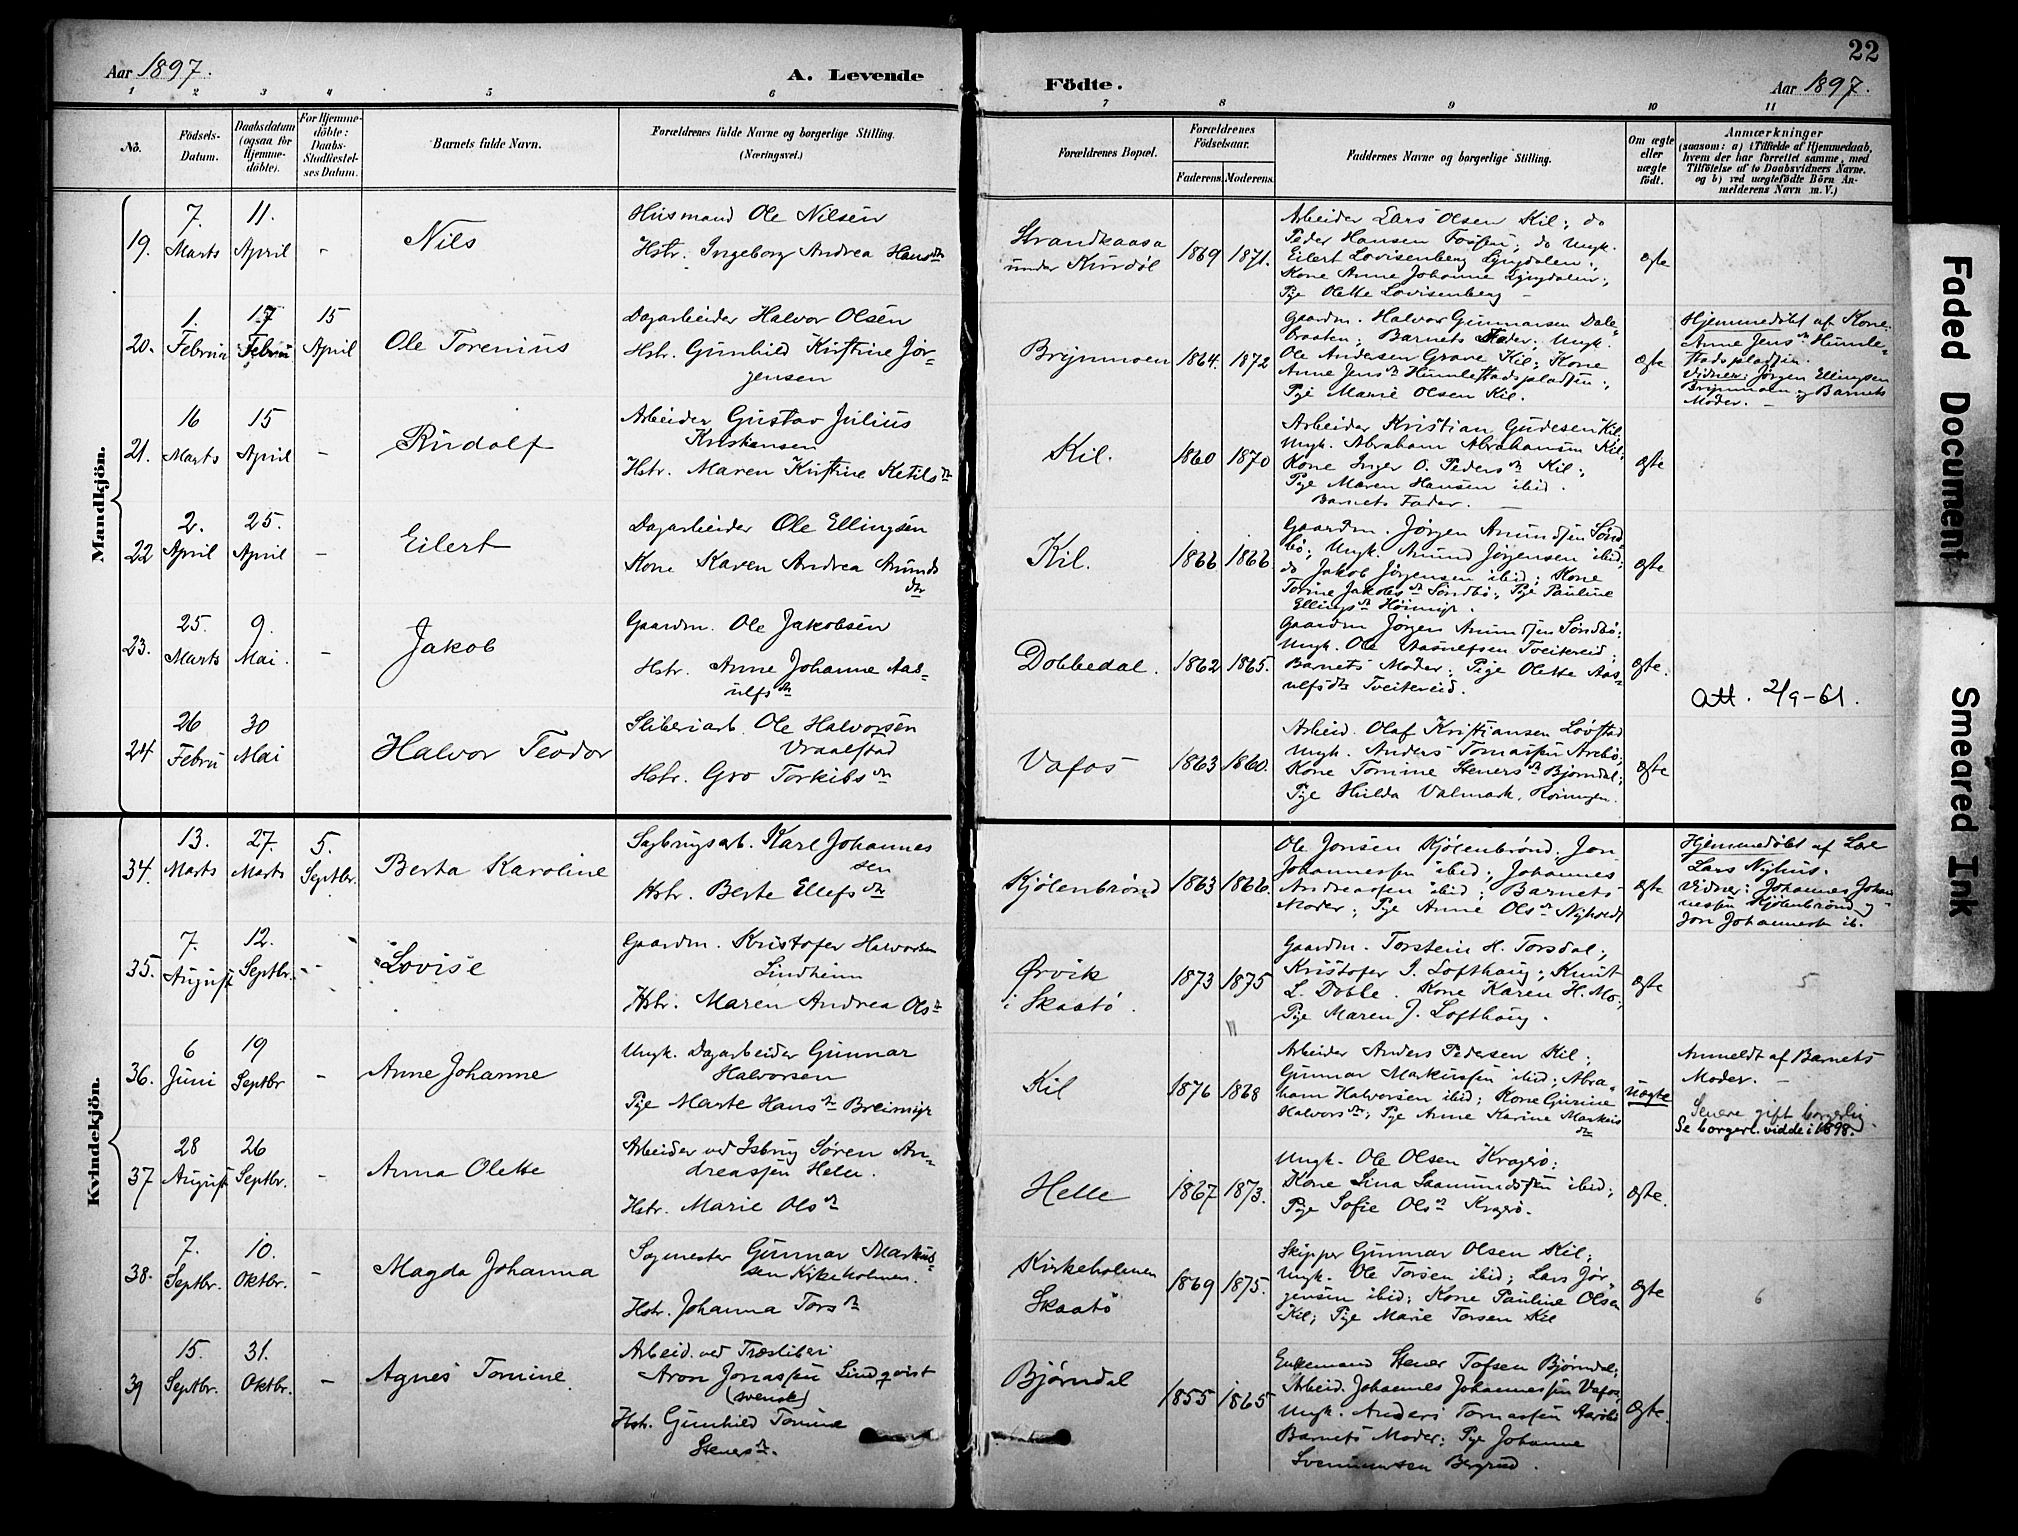 22
Aar 1897.
A. Levende
Födte.
Aar 1897.
1 2 3 4 5 6 7 8 9 10 11
No.
Födsels-
Datum.
Daabsdatum
(ogsaa for
Hjemme-
döbte).
For Hjemme-
döbte:
Daabs-
Stadfæstel-
ses Datum.
Barnets fulde Navn.
Forældrenes fulde Navne og borgerlige Stilling.
(Næringsvei.)
Forældrenes Bopæl.
Forældrenes
Födselsaar.
Faderens.
Moderens.
Faddernes Navne og borgerlige Stilling.
Om ægte
eller
uægte
födt.
Anmærkninger
(saasom: a) i Tilfælde af Hjemmedaab,
hvem der har forrettet samme, med
Tilföielse af to Daabsvidners Navne.
og b) ved uægtefödte Börn An-
melderens Navn m. V.)
Mandkjön.
19.
7.
Marts
11.
April
-
Nils
Husmand Ole Nilsen
Hstr. Ingeborg Andrea Hansdtr
Strandkaasa
under Kurdøl
1869
1871.
Arbeider Lars Olsen Kil; do
Peder Hansen Fossen; do Ungk.
Eilert Lovisenberg Lyngdalen;
Kone Anne Johanne Lyngdalen;
Pige Olette Lovisenberg -
ægte
20.
1.
Februa
17
Februa
15
April
Ole Torenius
Dagarbeider Halvor Olsen
Hstr. Gunhild Kirstine Jør-
gensen
Brynmoen
1864.
1872
Gaardm. Halvor Gunnarsen Dale-
braaten; Barnets Fader; Ungk.
Ole Andersen Grave Kil; Kone
Anne Jensdtr Humlestadspladsen;
Pige Marie Olsen Kil.
ægte
Hjemmedøbt af Kone
Anne Jensdtr Humle-
stadspladsen.
Vidner: Jørgen Ellingsen
Brynmoen og Barnets
Moder. -
21.
16
Marts
15
April
-
Rudolf
Arbeider Gustav Julius
Kristiansen
Hstr. Maren Kirstine Ketilsdtr
Kil.
1860
1870
Arbeider Kristian Gudesen Kil;
Ungk. Abraham Abrahamsen Kil;
Kone Inger O. Pedersdtr Kil;
Pige Maren Hansen ibid.
Barnets Fader.
ægte
22
2.
April
25.
April
-
Eilert
Dagarbeider Ole Ellingsen
Kone Karen Andrea Anunds
dtr
Kil.
1866
1866
Gaardm. Jørgen Anundsen Sønd-
bø; Ungk. Anund Jørgensen ibid;
do Jakob Jørgensen ibid; Kone
Torine Jakobsdtr Søndbø; Pige Pauline
Ellingsdtr Høimyr.
ægte
23.
25.
Marts
9.
Mai.
-
Jakob
Gaardm. Ole Jakobsen
Hstr. Anne Johanne Aas-
ulfsdtr
Dobbedal.
1862
1865.
Gaardm Jørgen Anundsen Søndbø;
Ungk. Ole Aasulfsen Tveitereid;
Barnets Moder; Pige Olette Aas-
ulfsdtr Tveitereid.
ægte.
Att. 2/9-61.
24
26
Febru
30
Mai
Halvor Teodor
Sliberiarb. Ole Halvorsen
Vraalstad
Hstr. Gro Torkilsdtr
Vafos
1863
1860.
Arbeid. Olaf Kristiansen Løvstad
Ungk. Anders Tomassen Arebø;
Kone Tomine Stenersdtr Bjørndal;
Pige Hulda Valmark,
ægte
Kvindekjön.
34.
13.
Marts
27.
Marts
5.
Septbr.
Berta Karoline
Sagbrugsarb. Karl Johannes
sen
Hstr. Berte Ellefsdtr
Kjølenbrønd
1863
1866.
Ole Jonsen Kjølenbrønd. Jon
Johannessen ibid; Johannes
Andreassen ibid; Barnets
Moder; Pige Anne Olsdtr
ægte
Hjemmedøbt af
Lars Nyhus.
Vidner: Johannes Johan
nessen Kjølenbrønd og
Jon Johannessen ib.
35.
7.
August
12.
Septbr.
-
Lovise
Gaardm. Kristofer Halvorsen
Lindheim
Hstr. Maren Andrea Olsdtr
Ørvik
i Skaatø.
1873
1875
Gaardm. Torstein H. Torsdal;
Kristofer J. Lofthaug; Knut
L. Doble. Kone Karen H. Mo;
Pige Maren J. Lofthaug.
ægte
5
36.
6
Juni
19
Septbr
-
Anne Johanne
Ungk. Dagarbeider Gunnar
Halvorsen
Pige Marte Hansdtr Breimyr
Kil
1876
1868
Arbeider Anders Pedersen Kil;
Gunnar Markussen ibid; Abra-
ham Halvorsen ibid; Kone Gurine
Halvorsdtr; Pige Anne Karine Markus
dtr
uægte
Anmeldt af Barnets
Moder. -
Senere gift borgerlig
Se borgerl. vidde i 1898.
37
28
August
26
Septbr.
-
Anna Olette
Arbeider ved Isbrug Søren An-
dreassen Helle.
Hstr. Marie Olsdtr
Helle
1867
1873.
Ungk. Ole Olsen Kragerø;
Kone Lina Saamundsen ibid;
Pige Sofie Olsdtr Kragerø.
ægte.
38.
7.
Septbr.
10.
Oktbr.
-
Magda Johanna
Sagmester Gunnar Markus-
sen Kirkeholmen.
Hstr. Johanna Torsdtr
Kirkeholmen
Skaatø
1869
1875.
Skipper Gunnar Olsen Kil;
Ungk. Ole Torsen ibid; Lars Jør-
gensen ibid; Kone Pauline Olsen
Kil; Pige Marie Torsen Kil
ægte
6
39
15.
Septbr.
31.
Oktbr.
-
Agnes Tomine.
Arbeid. ved Træsliberi
Aron Jonassen Lindqvist
(svensk)
Hstr. Gunhild Tomine
Stenersdtr.
Bjørndal
1855
1865
Enkemand Stener Tofsen Bjørndal;
Arbeid. Johannes Johannessen Vafos;
Ungk. Anders Tomassen Aarebø
Barnets Moder; Pige Johanne
Svennumsen Bergrud.
ægte.
Faded Document
Smeared Ink